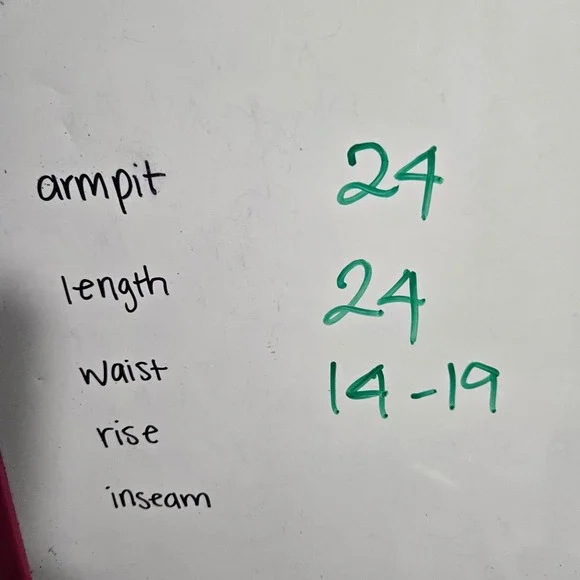 armpit 24
length 24
waist 14-19
rise
inseam